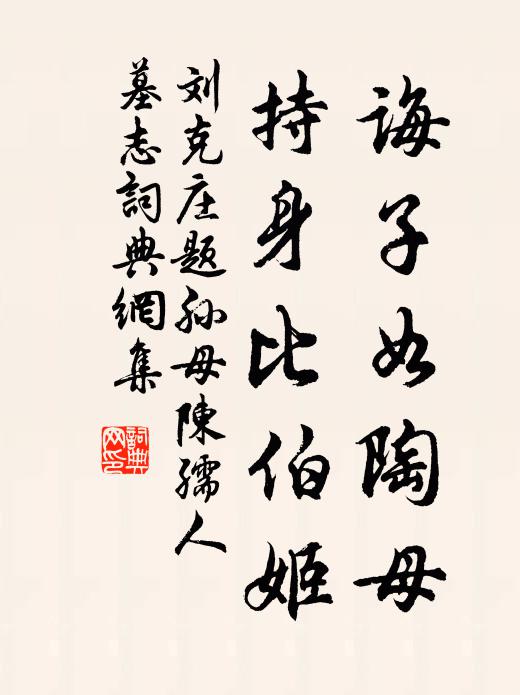 诲子如陶母
持身比伯姬
刘克庄题孙母陳孺人
墓志詞典網集
詞典
网印